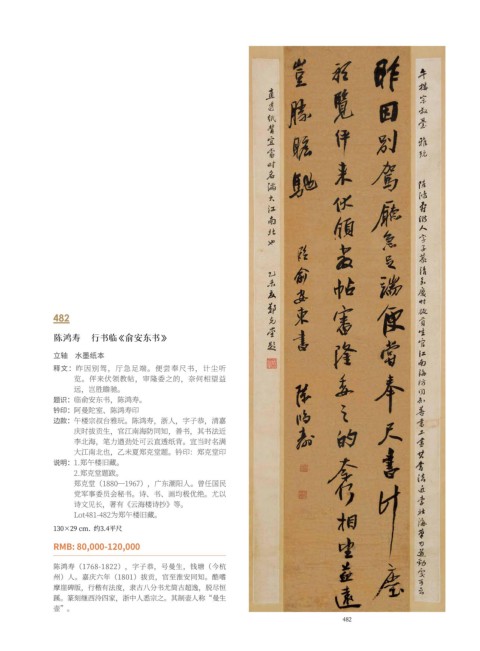 482
陈鸿寿　行书临《俞安东书》
立轴　水墨纸本
释文：昨因别驾，厅急足端。便尝奉尺书，计尘听
览。伴来伏领教帖，审隆委之，奈何相望益
远，岂胜瞻驰。
题识：临俞安东书，陈鸿寿。
钤印：阿曼陀室、陈鸿寿印
边款：午楼宗叔台雅玩。陈鸿寿，浙人，字子恭，清嘉
庆时拔贡生，官江南海防同知，善书，其书法近
李北海，笔力遒劲处可云直透纸背。宜当时名满
大江南北也，乙未夏郑克堂题。钤印：郑克堂印
说明：1.郑午楼旧藏。
2.郑克堂题跋。
郑克堂（1880—1967），广东潮阳人。曾任国民
党军事委员会秘书。诗、书、画均极优绝。尤以
诗文见长，著有《云海楼诗抄》等。
Lot481-482为郑午楼旧藏。
130×29 cm. 约3.4平尺
RMB: 80,000-120,000
陈鸿寿（1768-1822），字子恭，号曼生，钱塘（今杭
州）人。嘉庆六年（1801）拔贡，官至淮安同知。酷嗜
摩崖碑版，行楷有法度，隶古八分书尤简古超逸，脱尽恒
蹊。篆刻继西泠四家，浙中人悉宗之。其制壶人称“曼生
壶”。
午楼宗叔台 雅玩
昨因别驾厅急足端便当奉尺书计尘
听览伴来伏领教帖审隆委之的奈何相望益远
岂胜瞻驰
临俞安东书 陈鸿寿
直透纸背宜当时名满大江南北也 乙未夏郑克堂题
482